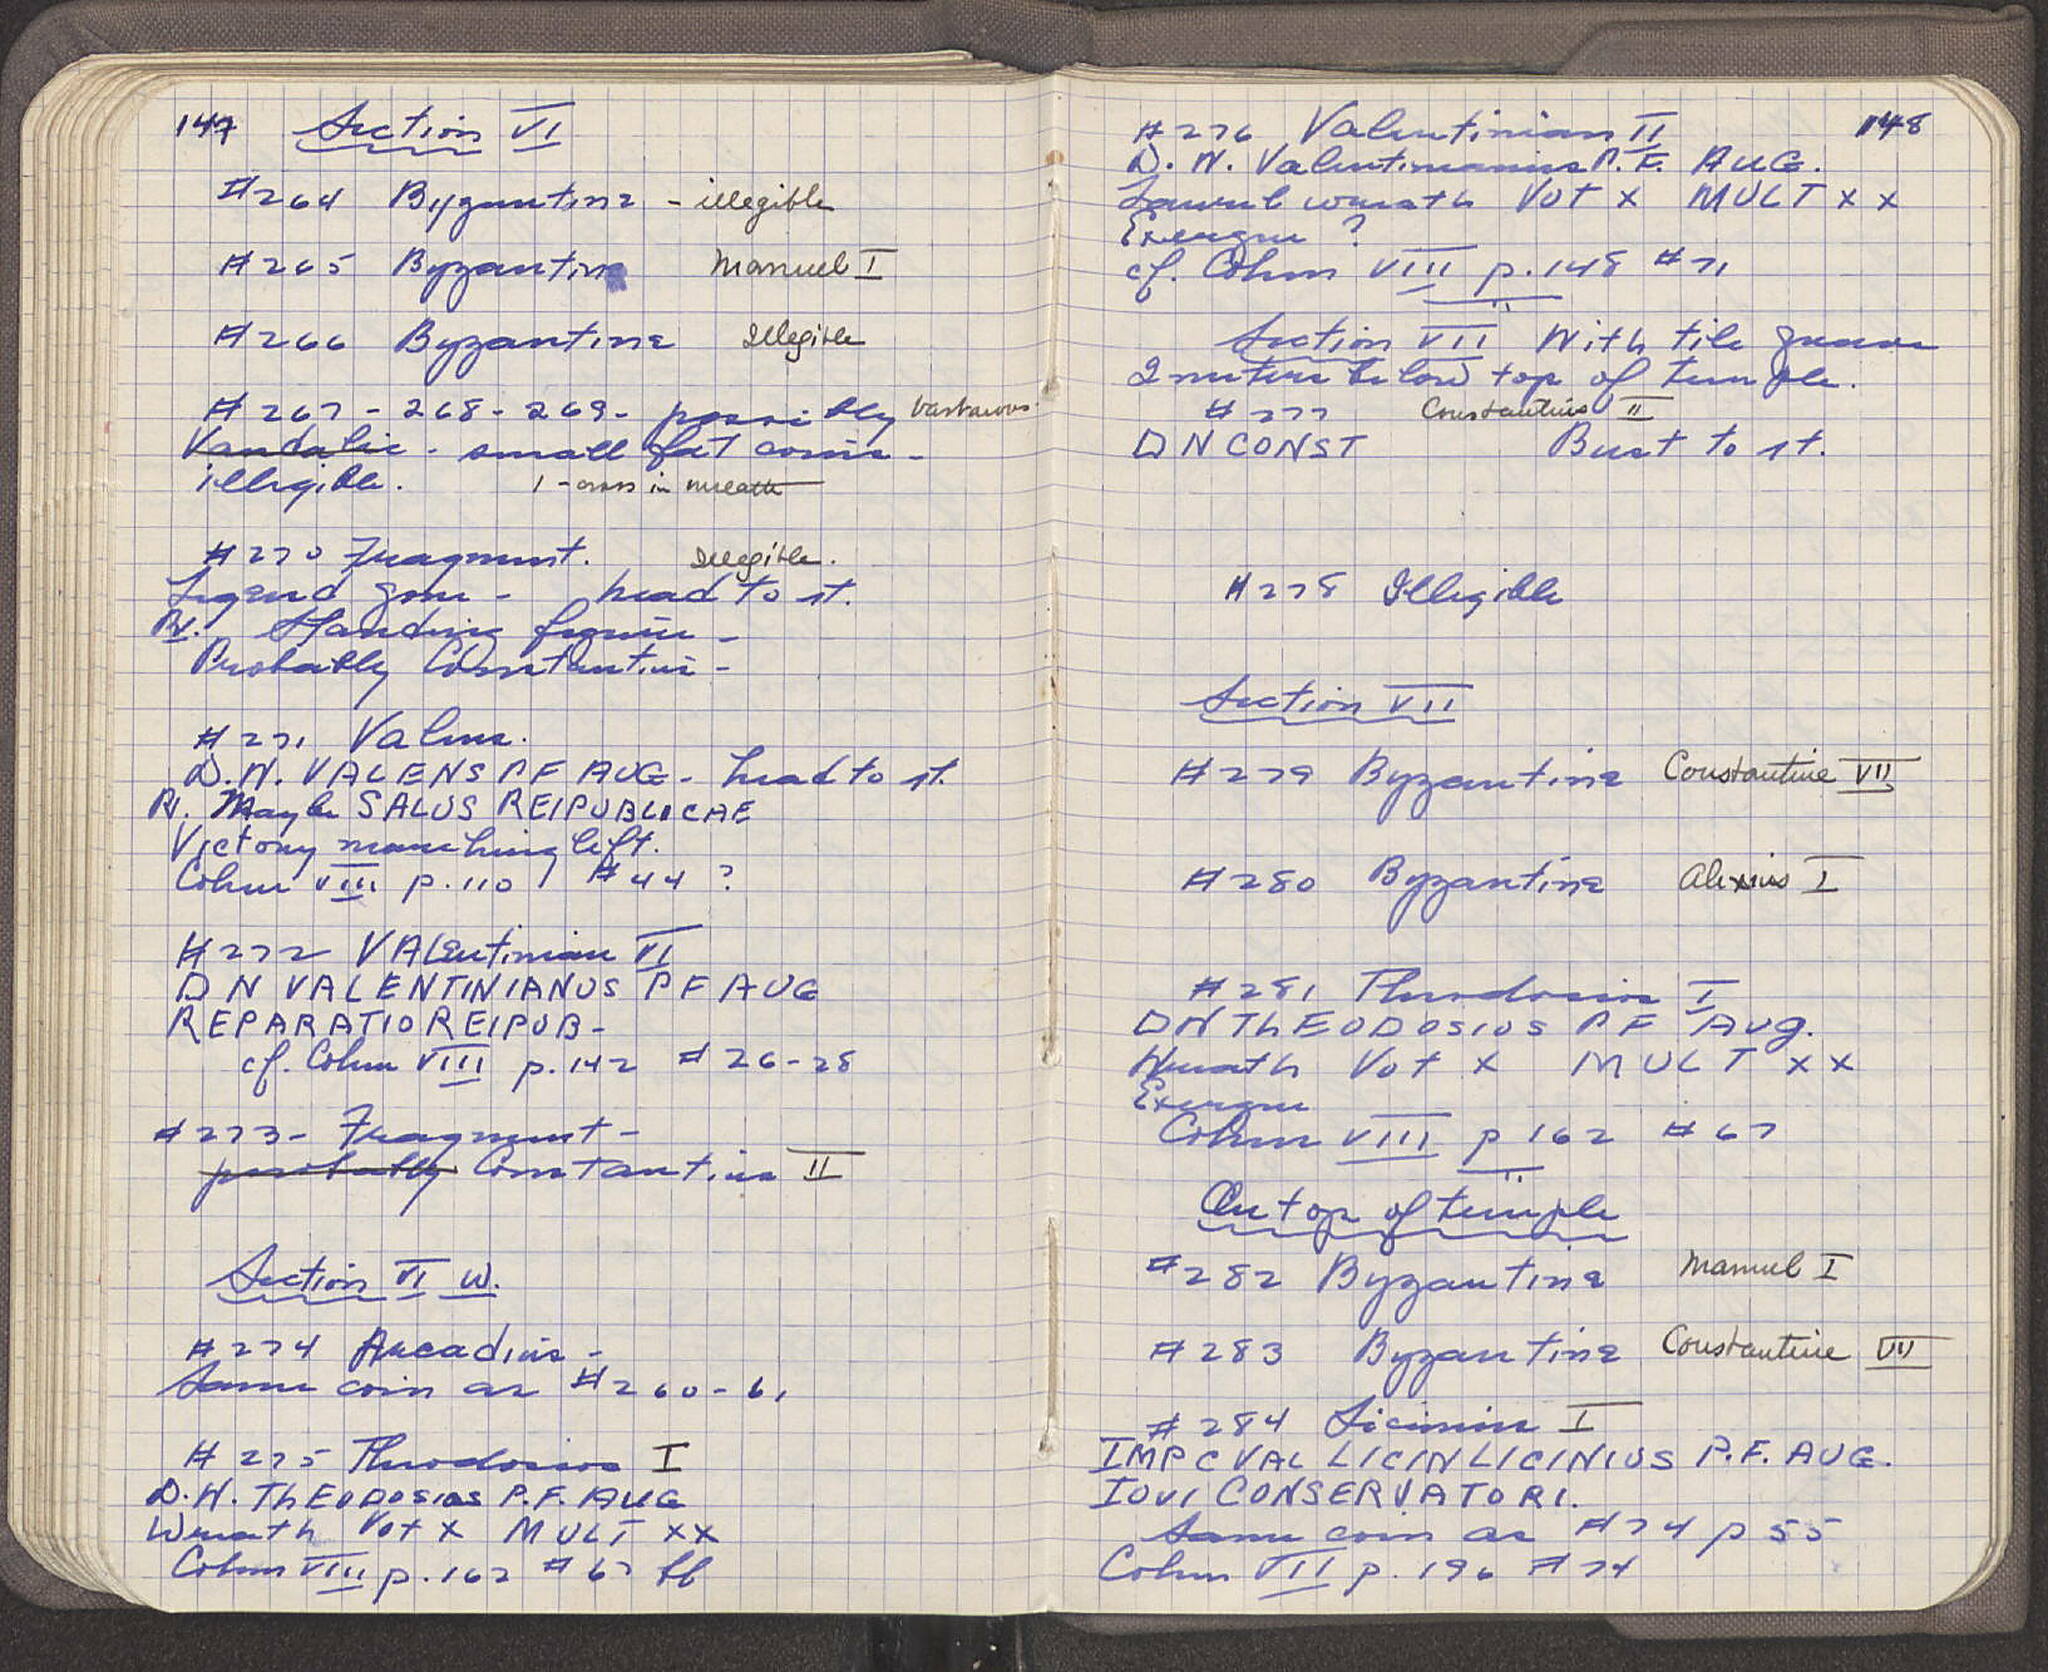 147 Section VI
#264 Byzantine - illegible
#265 Byzantine Manuel I
#266 Byzantine Illegible
#267 - 268 - 269 - possibly barbarous
Vandalic - small fat coins -
illegible. 1 - cross in wreath
#270 Fragment. Illegible.
Legend gone - head to rt.
Rv. Standing figure -
Probably Constantius -
#271 Valens.
D.N. VALENS PF AUG - head to rt.
Rv. Maybe SALUS REIPUBLICAE
Victory marching left.
Cohen VIII p. 110 #44 ?
#272 VALentinian II
DN VALENTINIANUS PF AUG
REPARATIO REIPUB -
cf. Cohen VIII p. 142 #26-28
#273 - Fragment -
probably Constantius II
Section VI W.
#274 Arcadius -
Same coin as #260-61
#275 Theodosius I
D.N. ThEODOSIUS P.F. AUG
Wreath Vot X MULT XX
Cohen VIII p. 162 #67 ff
148
#276 Valentinian II
D.N. Valentinianus P.F. AUG.
Laurel wreath Vot X MULT XX
Exergue ?
cf. Cohen VIII p. 148 #71
Section VII With tile graves
2 meters below top of temple.
#277 Constantius II
DN CONST Bust to rt.
#278 Illegible
Section VII
#279 Byzantine Constantine VII
#280 Byzantine Alexius I
#281 Theodosius I
DN ThEODOSIUS PF Aug.
Wreath Vot X MULT XX
Exergue
Cohen VIII p 162 #67
On top of temple
#282 Byzantine Manuel I
#283 Byzantine Constantine VII
#284 Licinius I
IMP C VAL LICIN LICINIUS P.F. AUG.
IOVI CONSERVATORI.
Same coin as #74 p 55
Cohen VII p. 196 #74